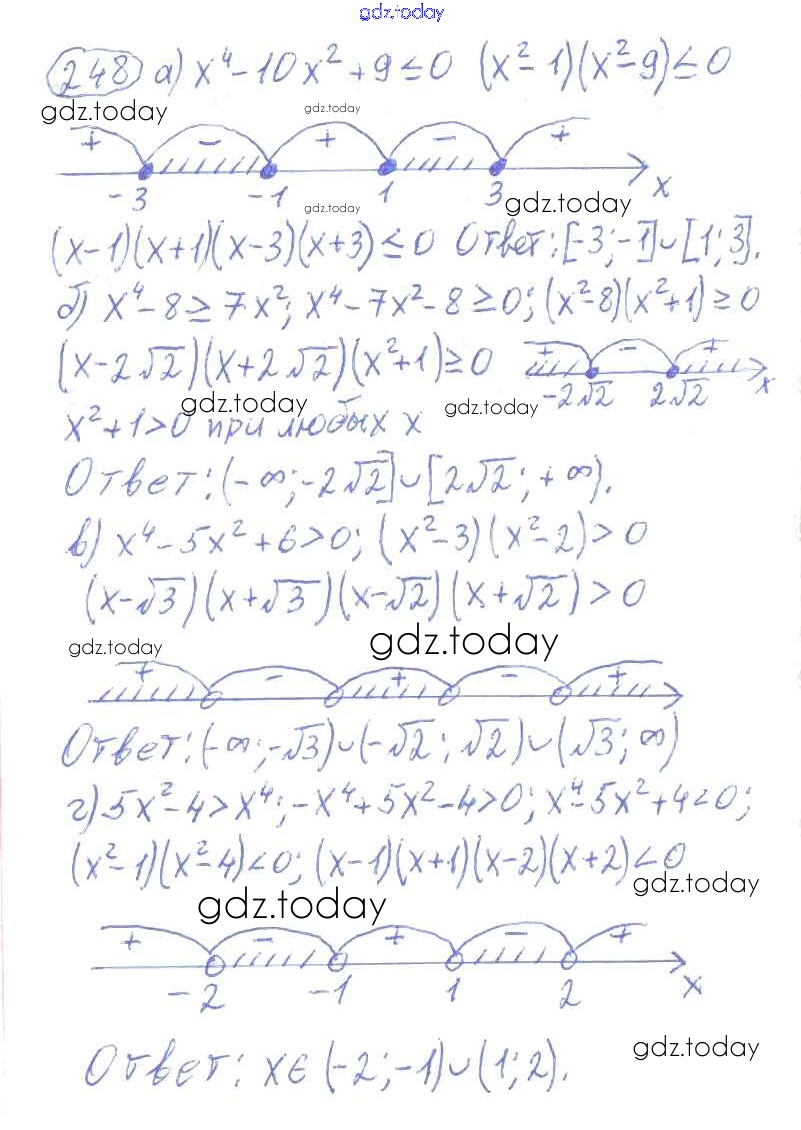 gdz.today
248 а) x⁴-10x²+9≤0 (x²-1)(x²-9)≤0
gdz.today gdz.today
+ - + - +
-3 -1 1 3 x
gdz.today gdz.today
(x-1)(x+1)(x-3)(x+3)≤0 Ответ: [-3;-1]∪[1;3].
б) x⁴-8≥7x²; x⁴-7x²-8≥0; (x²-8)(x²+1)≥0
(x-2√2)(x+2√2)(x²+1)≥0 + - +
-2√2 2√2 x
gdz.today gdz.today
x²+1>0 при любых x
Ответ: (-∞;-2√2]∪[2√2;+∞).
в) x⁴-5x²+6>0; (x²-3)(x²-2)>0
(x-√3)(x+√3)(x-√2)(x+√2)>0
gdz.today gdz.today
+ - + - +
Ответ: (-∞;-√3)∪(-√2;√2)∪(√3;∞)
г) 5x²-4>x⁴; -x⁴+5x²-4>0; x⁴-5x²+4<0;
(x²-1)(x²-4)<0; (x-1)(x+1)(x-2)(x+2)<0
gdz.today
gdz.today
+ - + - +
-2 -1 1 2 x
gdz.today
Ответ: x∈(-2;-1)∪(1;2).